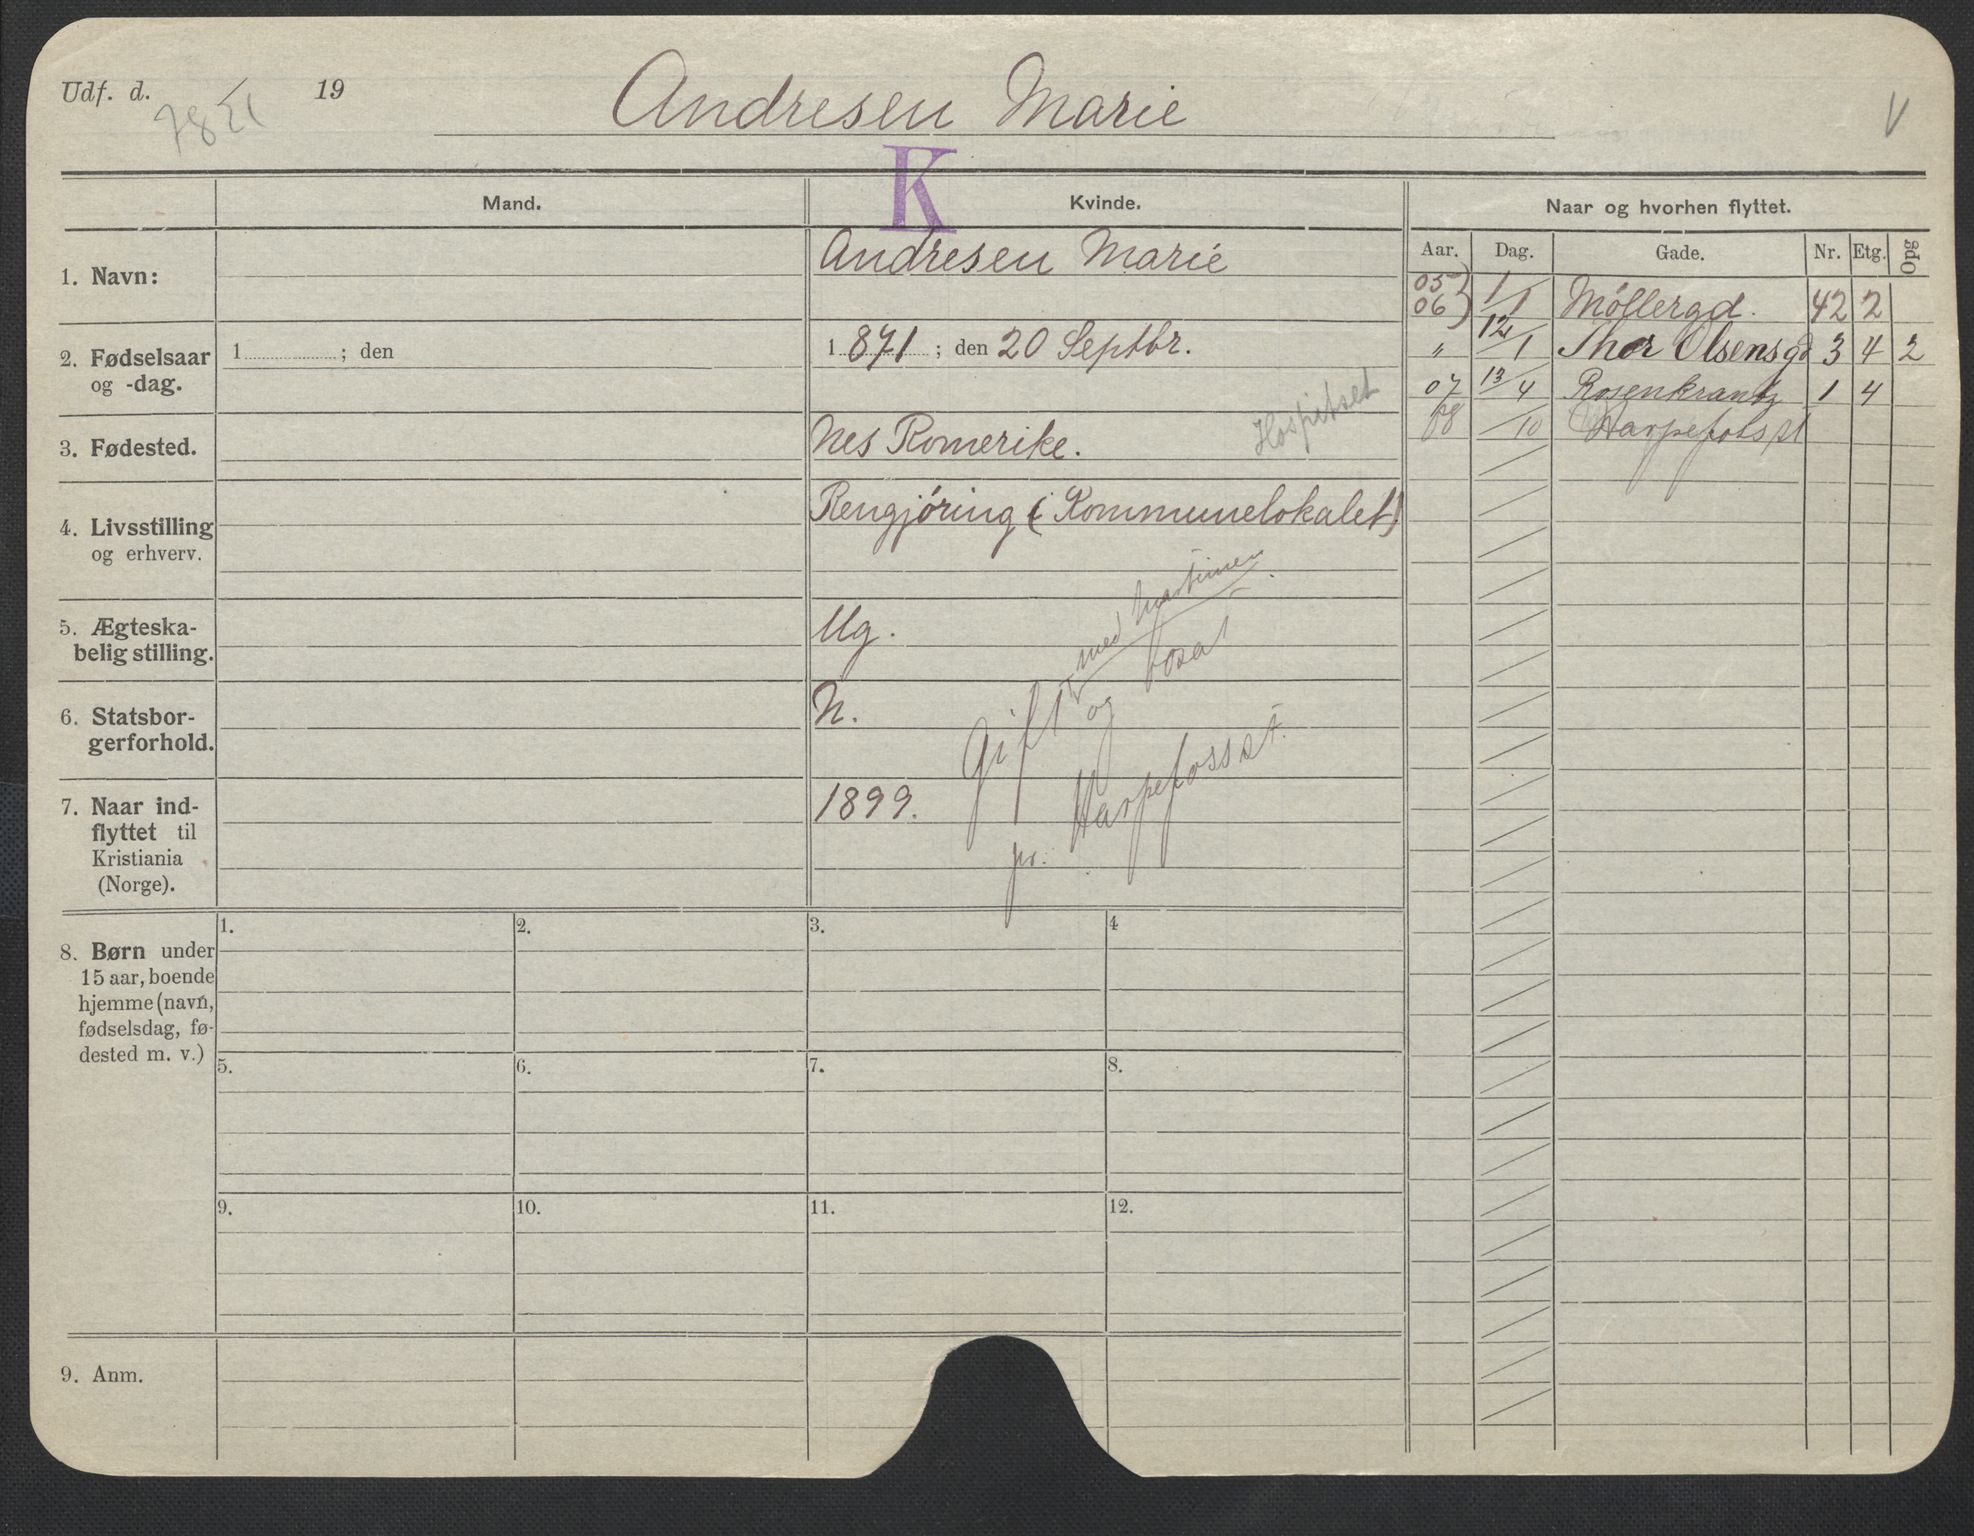 Udf. d. 19
Andresen Marie
V
K
Mand.
Kvinde.
Naar og hvorhen flyttet.
Aar. Dag. Gade. Nr. Etg. Opg
1. Navn:
Andresen Marie
05 06 1/1 Möllergd. 42 2
" 12/1 Thor Olsensgd 3 4 2
07 13/4 Rosenkrantz 1 4
08 /10 Harpefoss st
2. Fødselsaar
og -dag.
1 ; den
1871 ; den 20 Septbr.
3. Fødested.
Nes Romerike.
Hospitset
4. Livsstilling
og erhverv.
Rengjöring (i Kommunelokalet)
5. Ægteska-
belig stilling.
Ug.
6. Statsbor-
gerforhold.
N.
Gift med
og
pr. Harpefoss st.
7. Naar ind-
flyttet til
Kristiania
(Norge).
1899.
8. Børn under
15 aar, boende
hjemme (navn,
fødselsdag, fø-
dested m. v.)
1. 2. 3. 4
5. 6. 7. 8.
9. 10. 11. 12.
9. Anm.